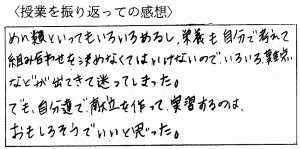 〈授業を振り返っての感想〉
めん類といってもいろいろあるし,栄養も自分で考えて
組み合わせを決めなくてはいけないので,いろいろ,難点
などが出てきて迷ってしまった。
でも、自分達で献立を作って,実習するのは,
おもしろそうでいいと思った。